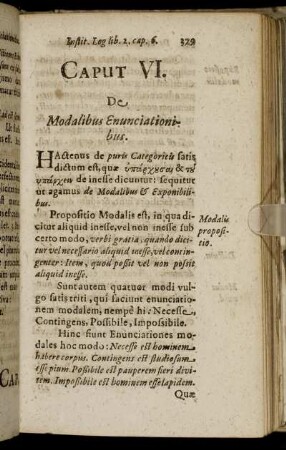 Instit. Log lib. 2. cap. 6. 329
CAPUT VI.
De
Modalibus Enunciationi-
bus.
HActenus de puris Categoricis satis
dictum est, quæ ὑπάρχησαι & τῦ
ὑπάρχειν de inesse dicuntur: sequitur
ut agamus de Modalibus & Exponibili-
bus.
Propositio Modalis est, in qua di-
citur aliquid inesse, vel non inesse sub
certo modo, verbi gratia, quando dici-
tur vel necessario aliquid inesse, vel contin-
genter: Item, quod possit vel non possit
aliquid inesse.
Modalis
proposi-
tio.
Sunt autem quatuor modi vul-
go satis triti, qui faciunt enunciatio-
nem modalem, nempè hi: Necesse,
Contingens, Possibile, Impossibile.
Hinc fiunt Enunciationes mo-
dales hoc modo: Necesse est hominem
habere corpus. Contingens est studiosum
esse pium. Possibile est pauperem fieri divi-
tem. Impossibile est hominem esse lapidem.
Quæ